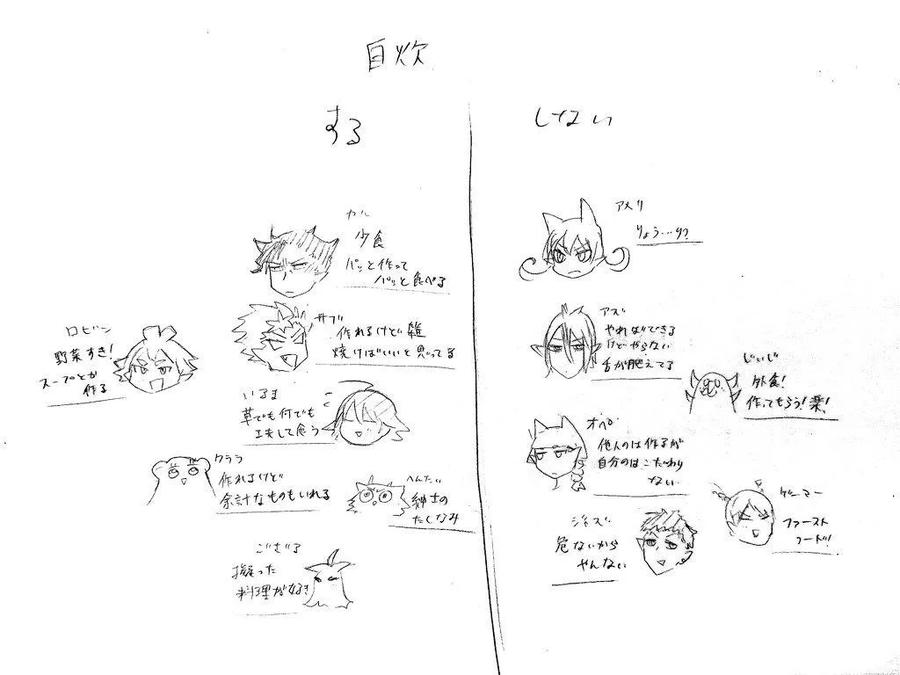 自炊
する
しない
カル
少食
パッと作って
パッと食べる
サブ
作れるけど雑
焼けばいいと思ってる
ロビン
野菜すき!
スープとか
作る
いるま
草でも何でも
工夫して食う
クララ
作れるけど
余計なものもいれる
へんたい
紳士の
たしなみ
ござる
凝った
料理が好き
アメリ
りょう…り?
アズ
やればできる
けどやらない
舌が肥えてる
じぃじ
外食!
作ってもらう!楽!
オペ
他人のは作るが
自分のはこだわり
ない
ジャズ
危ないから
やんない
ゲーマー
ファースト
フード!